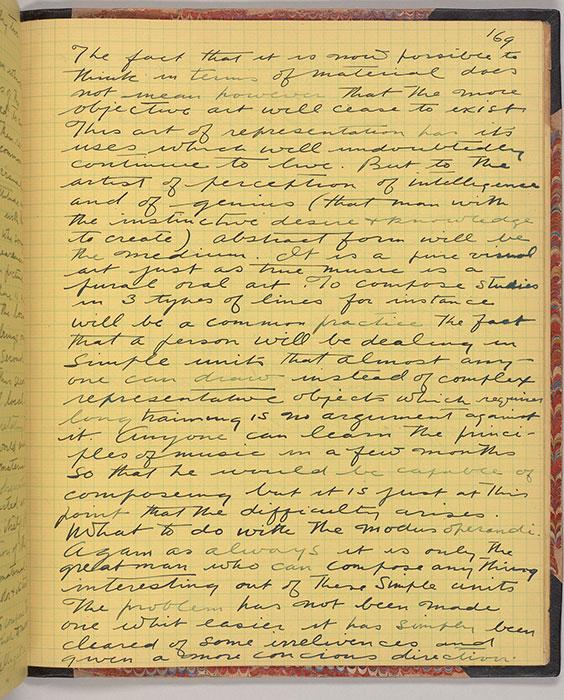 169
The fact that it is now possible to
think in terms of material does
not mean however that the more
objective art will cease to exist
This art of representation has its
uses which will undoubtedly
continue to live. But to the
artist of perception of intelligence
and of genius (that man with
the instinctive desire + knowledge
to create) abstract form will be
the medium. It is a pure visual
art just as true music is a
pural oral art. To compose studies
in 3 types of lines for instance
will be a common practice The fact
that a person will be dealing in
simple units that almost any-
one can draw instead of complex
representative objects which requires
long training is no argument against
it. Anyone can learn the princi-
ples of music in a few months
so that he would be capable of
composeing but it is just at this
point that the difficulty arises.
What to do with the modus operandi.
Again as always it is only the
great man who can compose any thing
interesting out of these simple units
The problem has not been made
one whit easier it has simply been
cleared of some irrelivences and
given a more concious direction.